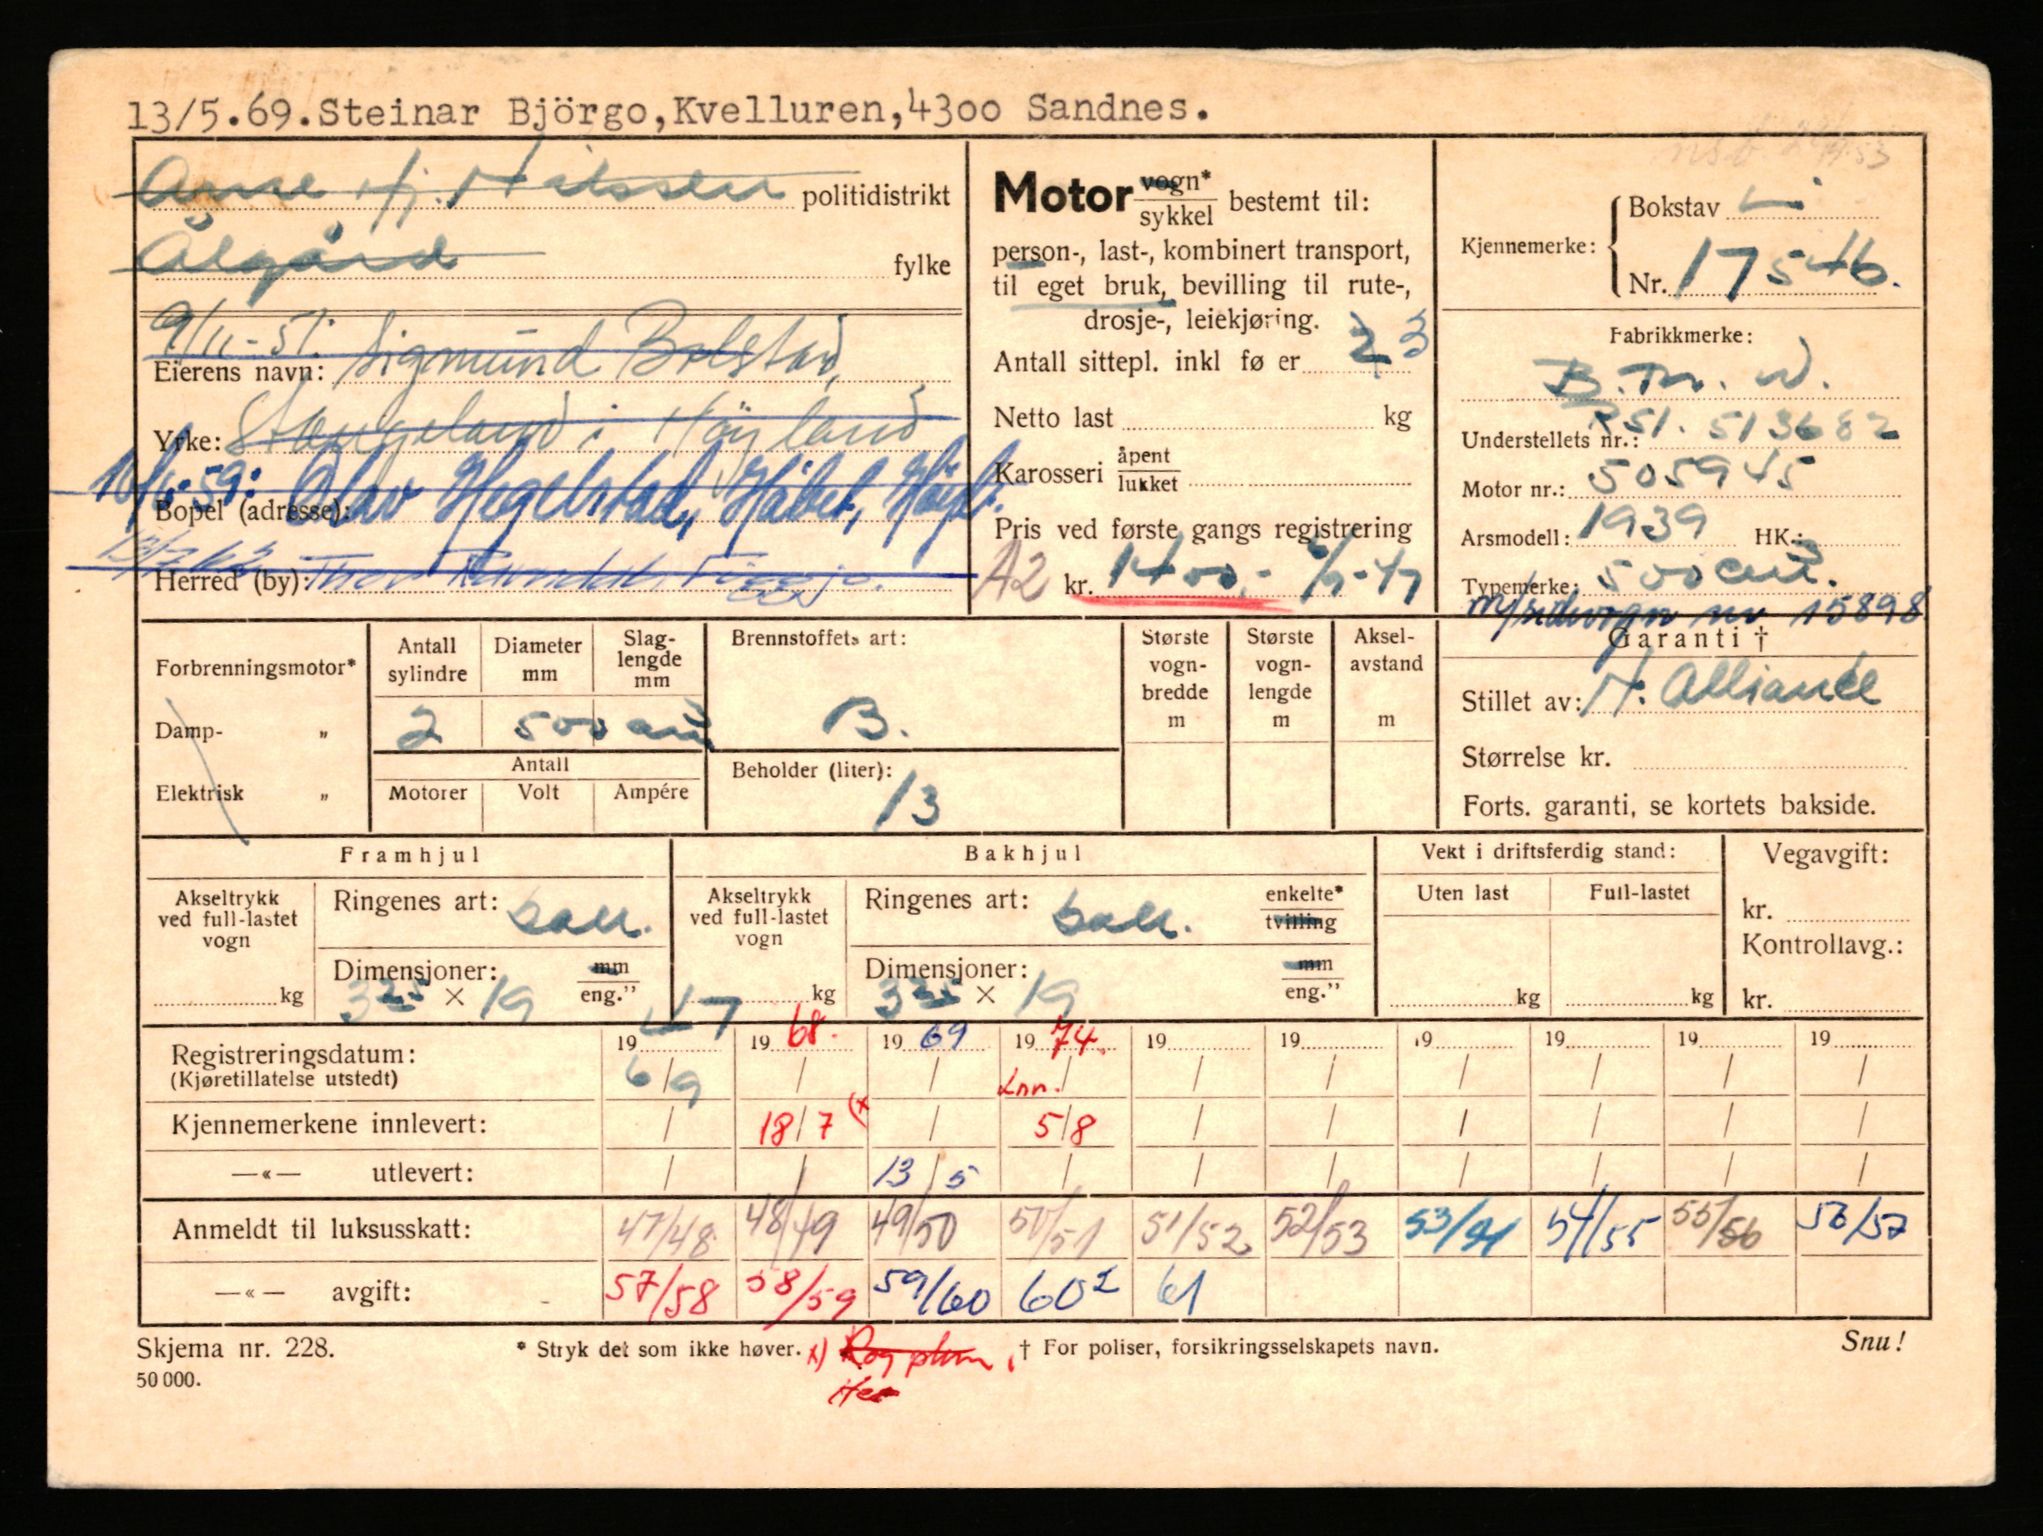 13/5.69.Steinar Björgo,Kvelluren,4300 Sandnes.
Arne Hj. Nilssen politidistrikt
Ålgård fylke
9/11-51: Sigmund Bolstad,
Eierens navn:
Yrke: Stangeland i Höyland
10/6-59: Olav Hegelstad, Håbet, Höyl.
Bopel (adresse):
Herred (by): Thor
Motor vogn* / sykkel bestemt til:
person-, last-, kombinert transport,
til eget bruk, bevilling til rute-,
drosje-, leiekjøring.
Antall sittepl. inkl fø er 2 3
Netto last kg
Karosseri åpent / lukket
Pris ved første gangs registrering
A2 kr. 1400.- 6/9-47
Kjennemerke: Bokstav L
Nr. 17546.
Fabrikkmerke:
B.M.W.
R51. 513682
Understellets nr.:
Motor nr.: 505945
Arsmodell: 1939 HK.:
Typemerke: 500 cm3.
m/sidevogn nr 15898
Garanti †
Stillet av: N. Alliance
Størrelse kr.
Forts. garanti, se kortets bakside.
Forbrenningsmotor*
Damp- „
Elektrisk „
Antall sylindre
Diameter mm
Slag-lengde mm
2 500 cm3
Antall
Motorer Volt Ampére
Brennstoffets art:
B.
Beholder (liter):
13
Største vogn-bredde m
Største vogn-lengde m
Aksel-avstand m
Framhjul
Akseltrykk ved full-lastet vogn
kg
Ringenes art: ball.
Dimensjoner: mm / eng."
325 × 19
Bakhjul
Akseltrykk ved full-lastet vogn
kg
Ringenes art: ball. enkelte* / tvilling
Dimensjoner: mm / eng."
325 × 19
Vekt i driftsferdig stand:
Uten last Full-lastet
kg kg
Vegavgift:
kr.
Kontrollavg.:
kr.
Registreringsdatum: 19 47 19 68. 19 69 19 74. 19 19 19 19 19 19
(Kjøretillatelse utstedt) 6/9 / / Inn. / / / / / / /
Kjennemerkene innlevert: / 18/7 (x / 5/8 / / / / / /
—«— utlevert: / / 13/5 / / / / / / /
Anmeldt til luksusskatt: 47/48 48/49 49/50 50/51 51/52 52/53 53/54 54/55 55/56 56/57
—«— avgift: 57/58 58/59 59/60 60² 61
Skjema nr. 228. * Stryk det som ikke høver. x) † For poliser, forsikringsselskapets navn. Snu!
50 000.